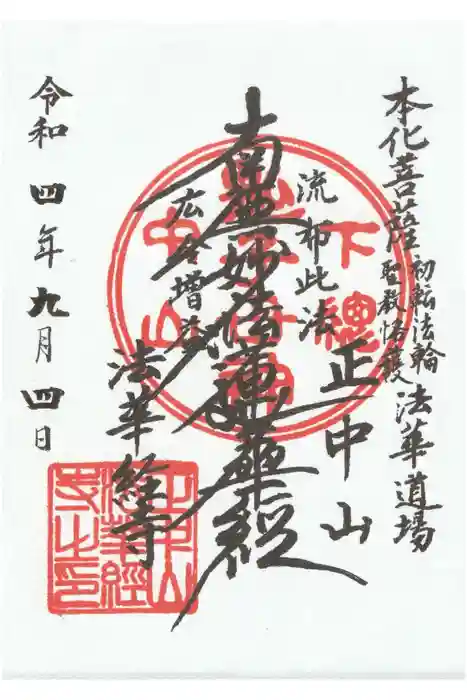 本化菩薩初転法輪法華道場
聖教恪護
正中山
流布此法
南無妙法蓮華経
広令増益
法華経寺
令和四年九月四日
下總
中山
正中山
法華經
寺之印